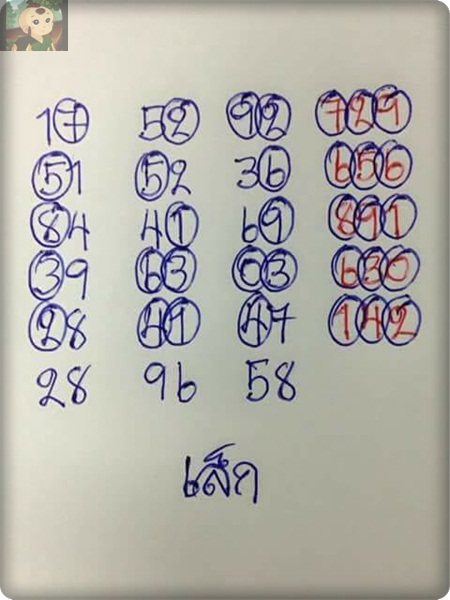 17 52 92 729
51 52 36 656
84 41 69 891
39 63 03 630
28 41 47 142
28 96 58
เล็ก